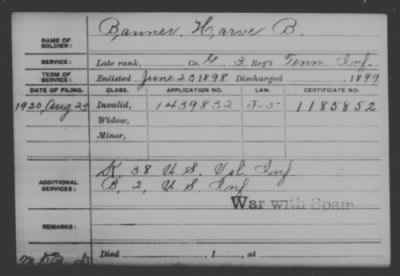 NAME OF SOLDIER: Banner, Harve B.
SERVICE: Late rank, Co. G, 3 Reg't Tenn Inf.
TERM OF SERVICE: Enlisted June 23 1898 Discharged , 1899
DATE OF FILING. CLASS. APPLICATION NO. LAW. CERTIFICATE NO.
1920, Aug 27 Invalid, 1439832 J-5- 1185852
Widow,
Minor,
ADDITIONAL SERVICES: K. 38 U. S. Vol. Inf
B. 2, U. S. Inf
War with Spain
REMARKS:
Died , 1 , at